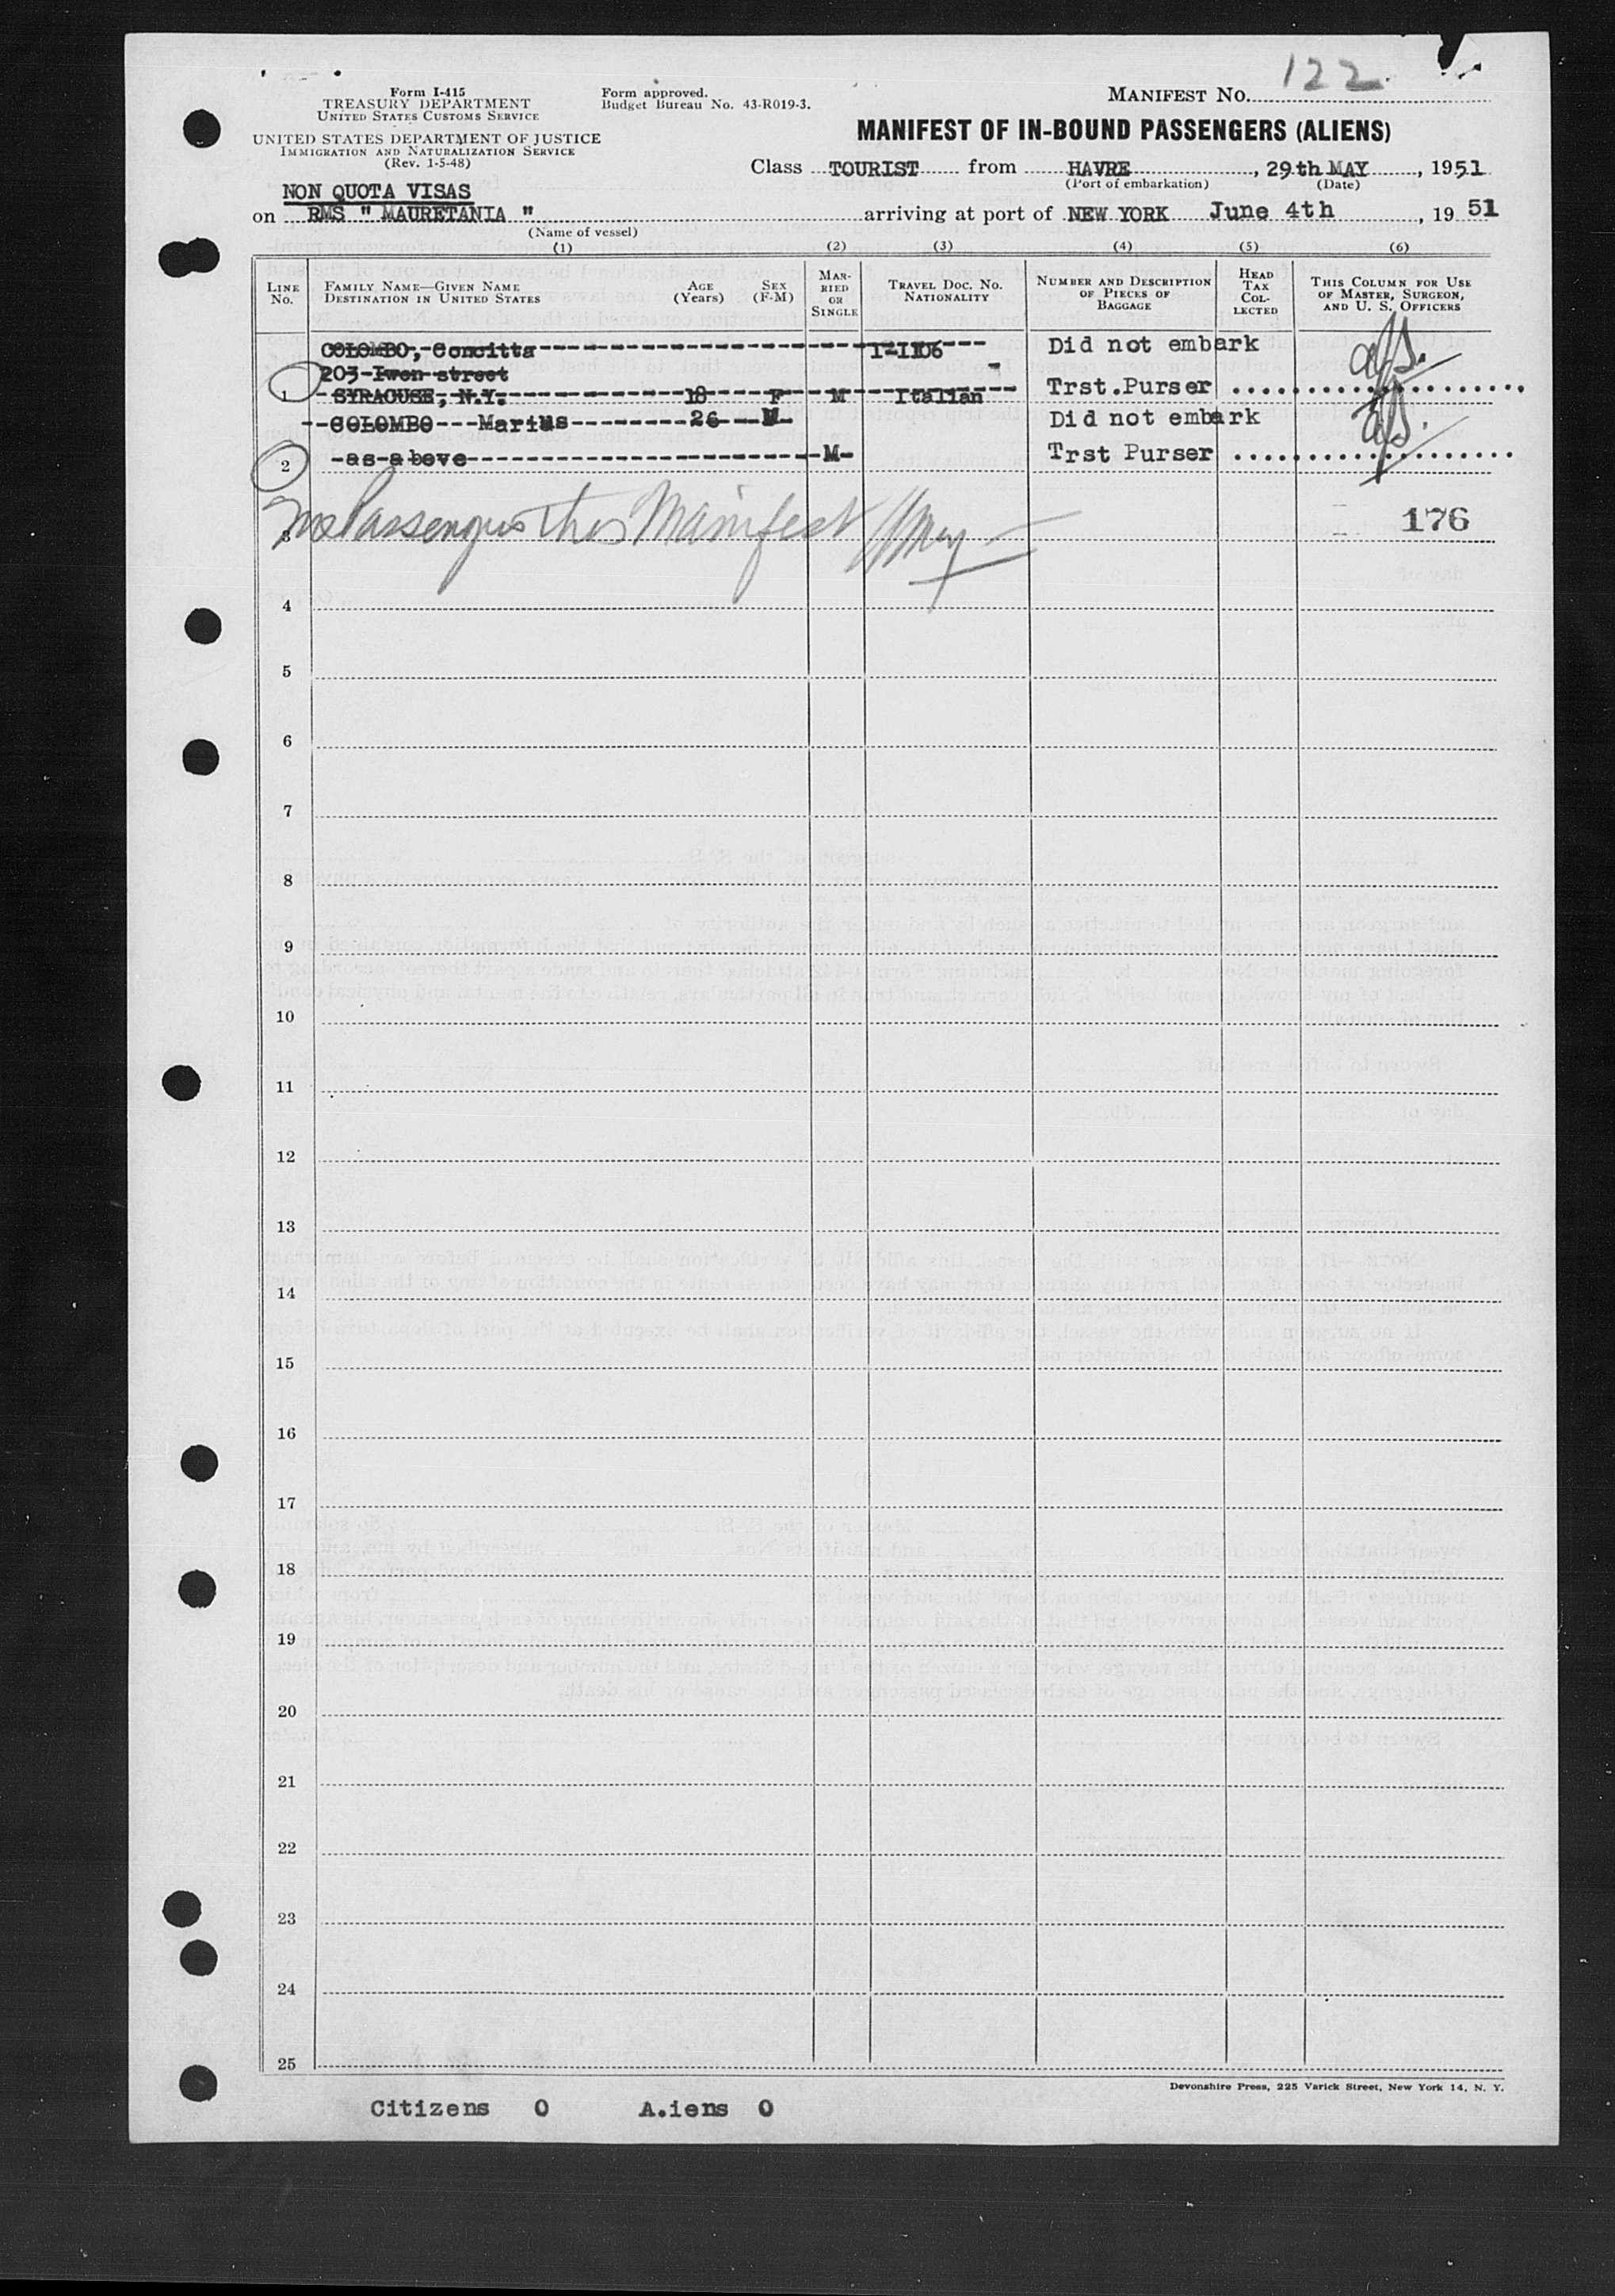 122
Form I-415
TREASURY DEPARTMENT
UNITED STATES CUSTOMS SERVICE
UNITED STATES DEPARTMENT OF JUSTICE
IMMIGRATION AND NATURALIZATION SERVICE
(Rev. 1-5-48)
Form approved.
Budget Bureau No. 43-R019-3.
MANIFEST No.
MANIFEST OF IN-BOUND PASSENGERS (ALIENS)
Class TOURIST from HAVRE, 29th MAY, 1951
(Port of embarkation) (Date)
NON QUOTA VISAS
on RMS " MAURETANIA " arriving at port of NEW YORK June 4th, 19 51
(Name of vessel)
(1) (2) (3) (4) (5) (6)
LINE No.
FAMILY NAME—GIVEN NAME DESTINATION IN UNITED STATES
AGE (Years)
SEX (F-M)
MARRIED OR SINGLE
TRAVEL DOC. No. NATIONALITY
NUMBER AND DESCRIPTION OF PIECES OF BAGGAGE
HEAD TAX COLLECTED
THIS COLUMN FOR USE OF MASTER, SURGEON, AND U. S. OFFICERS
COLOMBO, Concitta I-1106 Did not embark
203 Iwon street
1 SYRACUSE, N.Y. 18 F M Italian Trst.Purser
COLOMBO Marius 26 M Did not embark
2 -as above M Trst Purser
No Passengers This Manifest
176
3
4
5
6
7
8
9
10
11
12
13
14
15
16
17
18
19
20
21
22
23
24
25
Devonshire Press, 225 Varick Street, New York 14, N. Y.
Citizens 0 A.iens 0